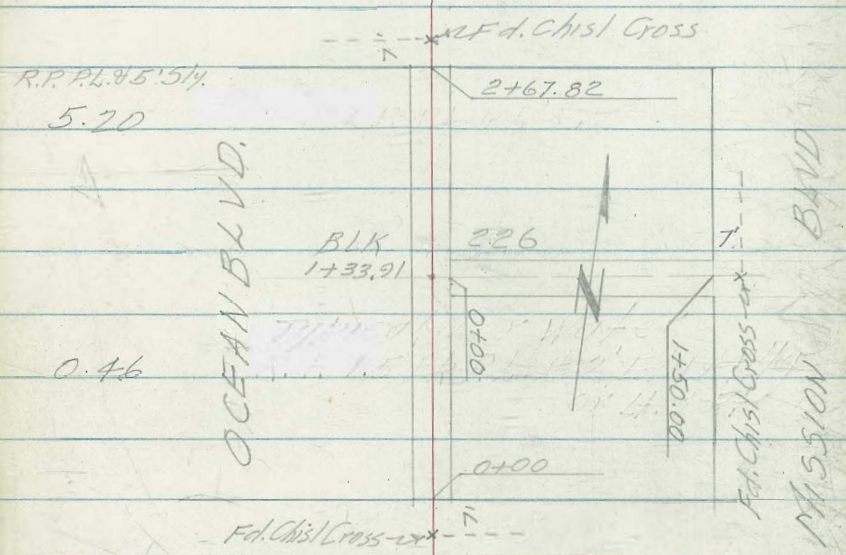 Fd. Chisl Cross
7'
R.P. P.L. & 5' Sly.
2+67.82
5.20
OCEAN BLVD.
BLK 226
1+33.91
7'
N
0+00
0.46
1+50.00
Fd. Chisl Cross
MISSION BLVD
0+00
Fd. Chisl Cross
7'